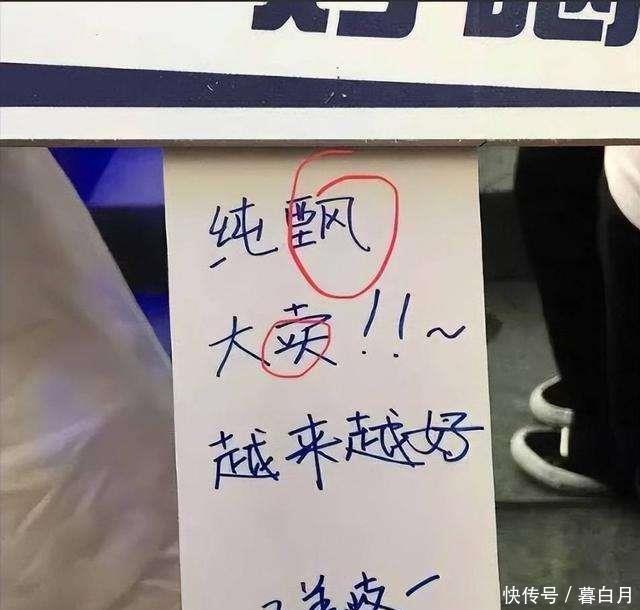 纯飘
大卖!!~
越来越好
快传号 / 暮白月